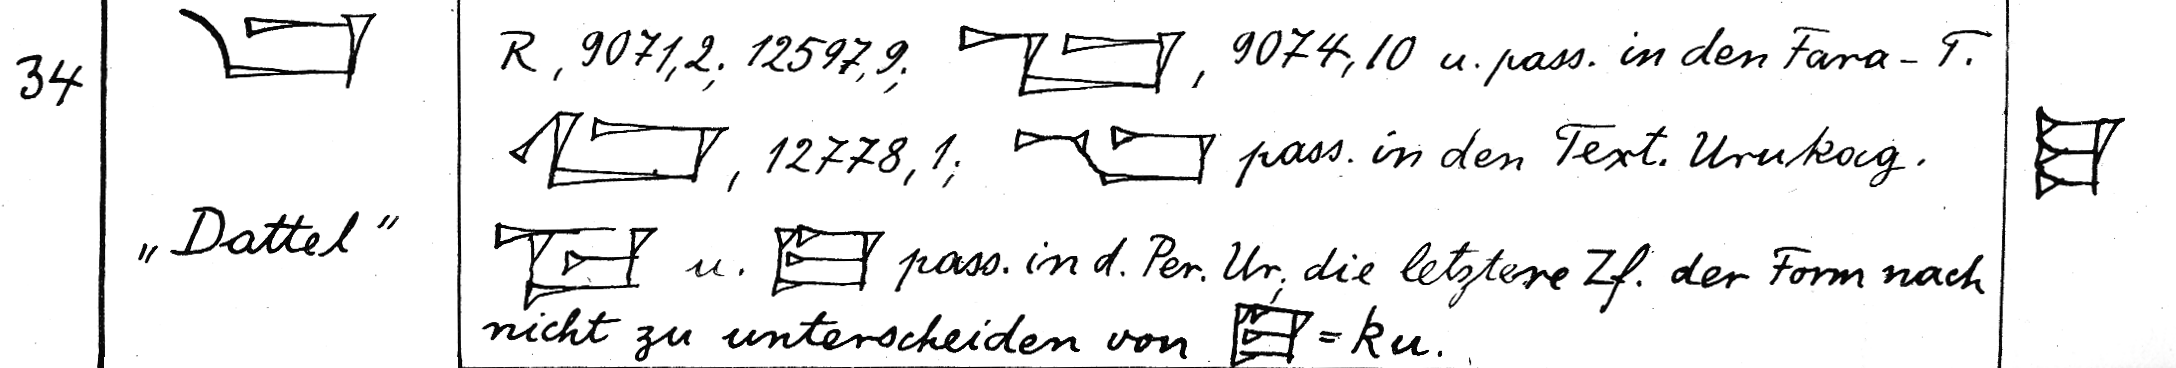 34 R, 9071,2; 12597,9; , 9074,10 u. pass. in den Fara-T.
, 12778,1; pass. in den Text. Urukag.
„Dattel“ u. pass. in d. Per. Ur; die letztere Zf. der Form nach
nicht zu unterscheiden von = ku.